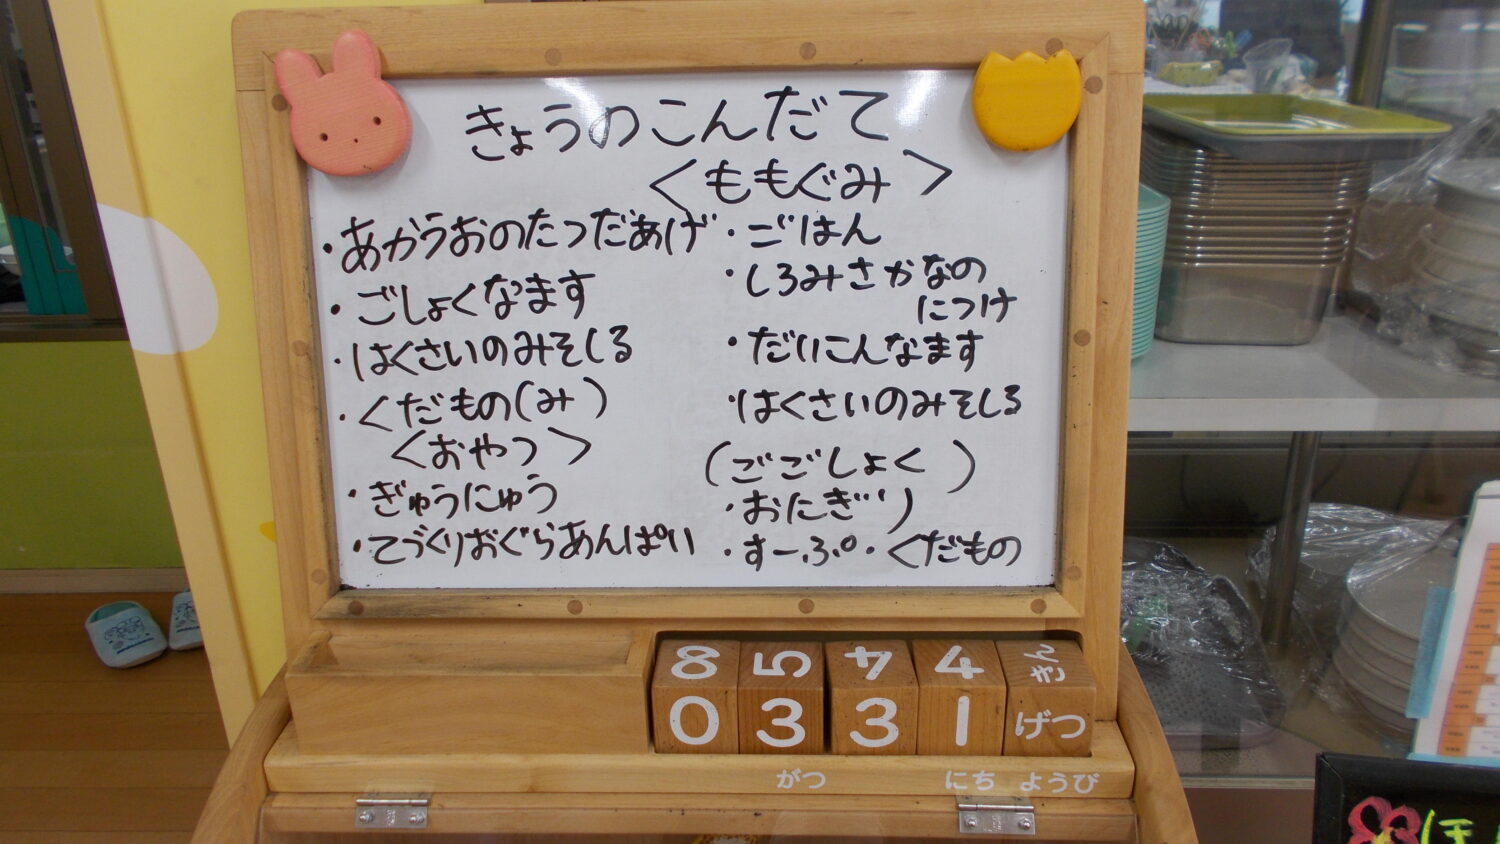 きょうのこんだて
<ももぐみ>
・あかうおのたつだあげ
・ごしょくなます
・はくさいのみそしる
・くだもの(み)
<おやつ>
・ぎゅうにゅう
・てづくりおぐらあんぱい
・ごはん
・しろみさかなの
につけ
・だいこんなます
・はくさいのみそしる
(ごごしょく)
・おたぎり
・すーぷ・くだもの
8 5 4 4 きん
0 3 3 1 げつ
がつ にち ようび